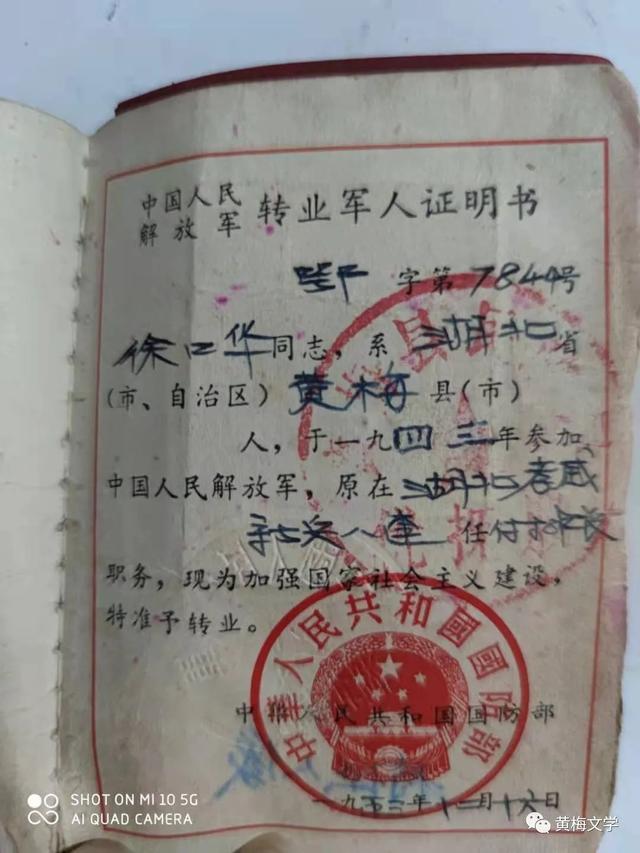 中国人民
解放军 转业军人证明书
字第7844号
徐口华同志，系湖北省
(市、自治区)黄梅县(市)
人，于一九四三年参加
中国人民解放军，原在湖北孝感
八 任付排长
职务，现为加强国家社会主义建设，
特准予转业。
中华人民共和国国防部
中華人民共和國國防部
一九五三年十二月十六日
县
SHOT ON MI 10 5G
AI QUAD CAMERA
黄梅文学